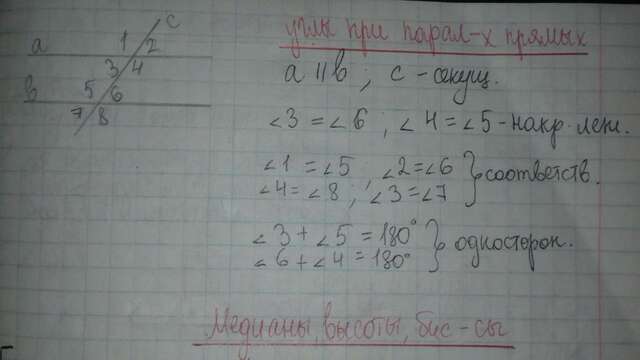 c
a 1 2
3 4
в 5 6
7 8
углы при парал-х прямых
a || b ; c - секущ.
∠3 = ∠6 ; ∠4 = ∠5 - накр. леж.
∠1 = ∠5 ; ∠2 = ∠6
∠4 = ∠8 ; ∠3 = ∠7 } соответств.
∠3 + ∠5 = 180°
∠6 + ∠4 = 180° } односторон.
Медианы, высоты, бис-сы